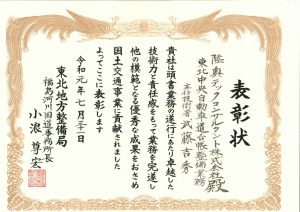 表彰状
陸奥テックコンサルタント株式会社殿
東北中央自動車道台帳整備業務
主任技術者 武藤吉秀
貴社は頭書業務の遂行にあたり卓越した
技術力と責任感をもって業務を完遂し
他の模範となる優秀な成果をおさめ
国土交通行事業に貢献されました
よってここに表彰します
令和元年七月三十一日
東北地方整備局
福島河川国道事務所長
小浪尊宏